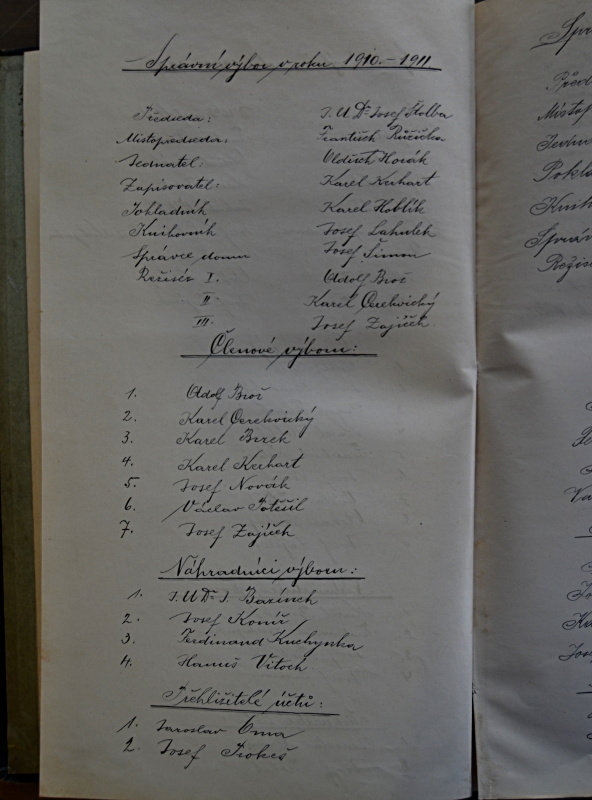 Správní výbor v roku 1910.-1911.
Předseda: J.U.Dr Josef Štolba
Místopředseda: František Růžička
Jednatel: Oldřich Horák
Zapisovatel: Karel Kerhart
Pokladník Karel Hoblík
Knihovník Josef
Správce domu Josef Šimon
Režisér I. Adolf Brož
II. Karel Cerekvický
III. Josef Zajíček
Členové výboru:
1. Adolf Brož
2. Karel Cerekvický
3. Karel Brzek
4. Karel Kerhart
5. Josef Novák
6. Václav Potěšil
7. Josef Zajíček
Náhradníci výboru:
1. J.U.Dr J.
2. Josef Koníř
3. Ferdinand Kuchynka
4. Hanuš Vitoch
Přehlížitelé účtů:
1. Jaroslav
2. Josef Prokeš
Správ
Před
Místop
Jedna
Pokla
Knih
Správ
Režis